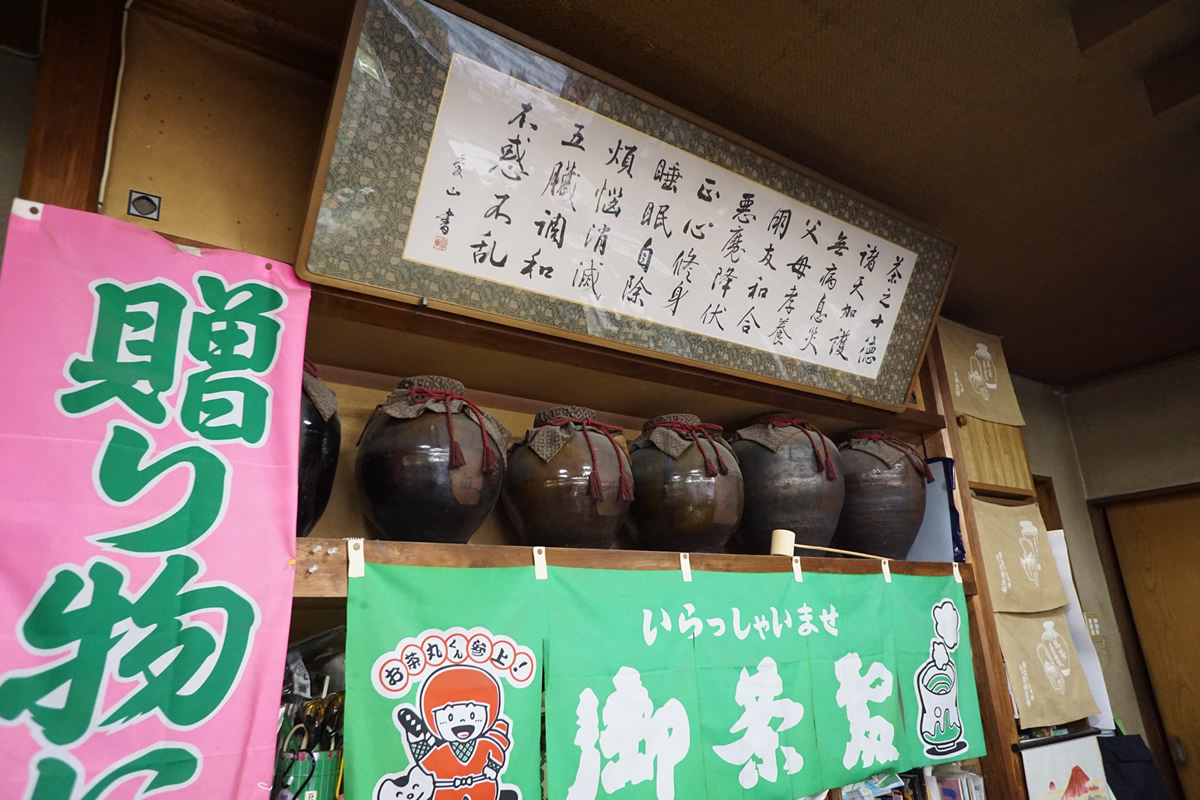 茶之十徳
諸天加護
無病息災
父母孝養
朋友和合
悪魔降伏
正心修身
睡眠自除
煩悩消滅
五臓調和
不惑不乱
愛山書
贈り物に
いらっしゃいませ
お茶丸くん参上!
御茶